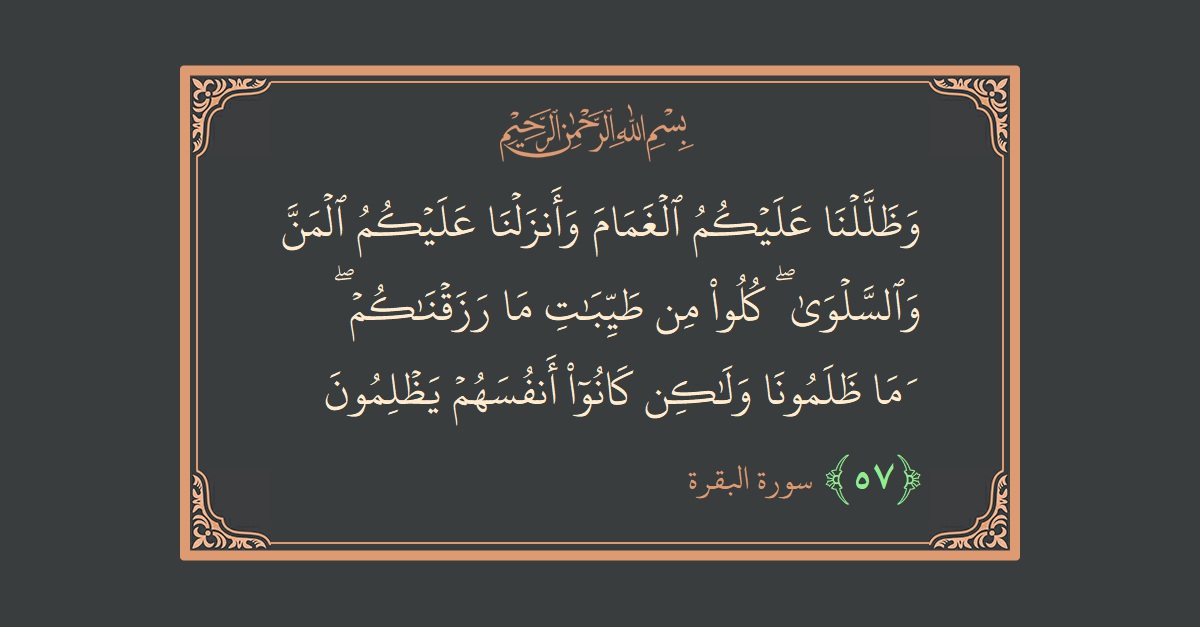 بِسْمِ اللهِ الرَّحْمٰنِ الرَّحِيْمِ
وَظَلَّلۡنَا عَلَيۡكُمُ ٱلۡغَمَامَ وَأَنزَلۡنَا عَلَيۡكُمُ ٱلۡمَنَّ
وَٱلسَّلۡوَىٰۖ كُلُواْ مِن طَيِّبَـٰتِ مَا رَزَقۡنَـٰكُمۡۖ
َمَا ظَلَمُونَا وَلَـٰكِن كَانُوٓاْ أَنفُسَهُمۡ يَظۡلِمُونَ
﴿٥٧﴾ سورة البقرة